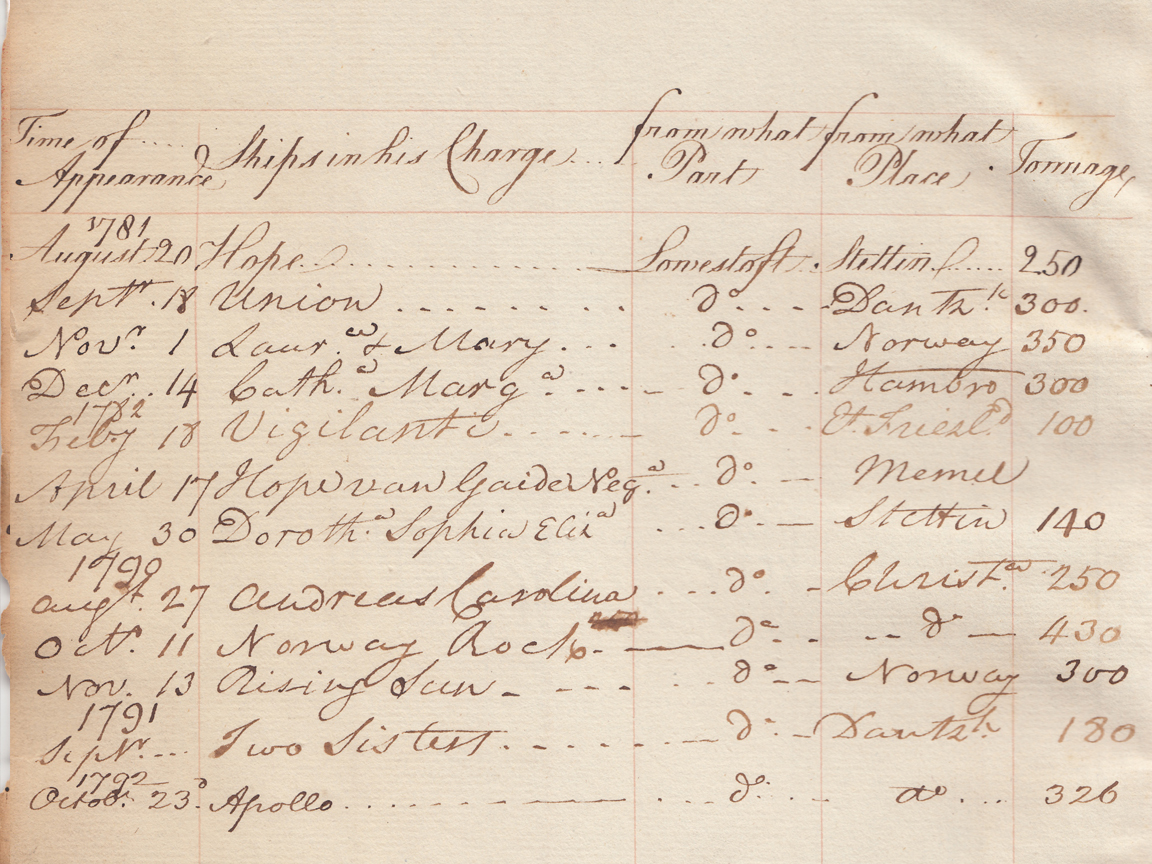 Time of .... Appearance Ships in his Charge ... from what Part from what Place Tonnage
1781
August 20 Hope ........ Lowestoft . Stettin ..... 250
Septr. 18 Union ........ do. ... Dantzk 300.
Novr. 1 Laur.a & Mary ... do. ... Norway 350
Decr. 14 Cath.a Marga .... do. .. Hambro 300
1782
Feby 18 Vigilante ...... do. .. Et. Friesl.d 100
April 17 Hope van Gaide Neg.a ... do. - Memel
May 30 Doroth.a Sophia Eliza ... do. - Stettin 140
1790
augt. 27 Andreas Carolina ... do. - Christ.a 250
Octr. 11 Norway Rock - do. .. do - 430
Nov. 13 Rising Sun - ... do. - Norway 300
1791
Sepr. ... Two Sisters ...... do. - Dantzk 180
1792
Octobr. 23d. Apollo ........ do. ... do .... 326